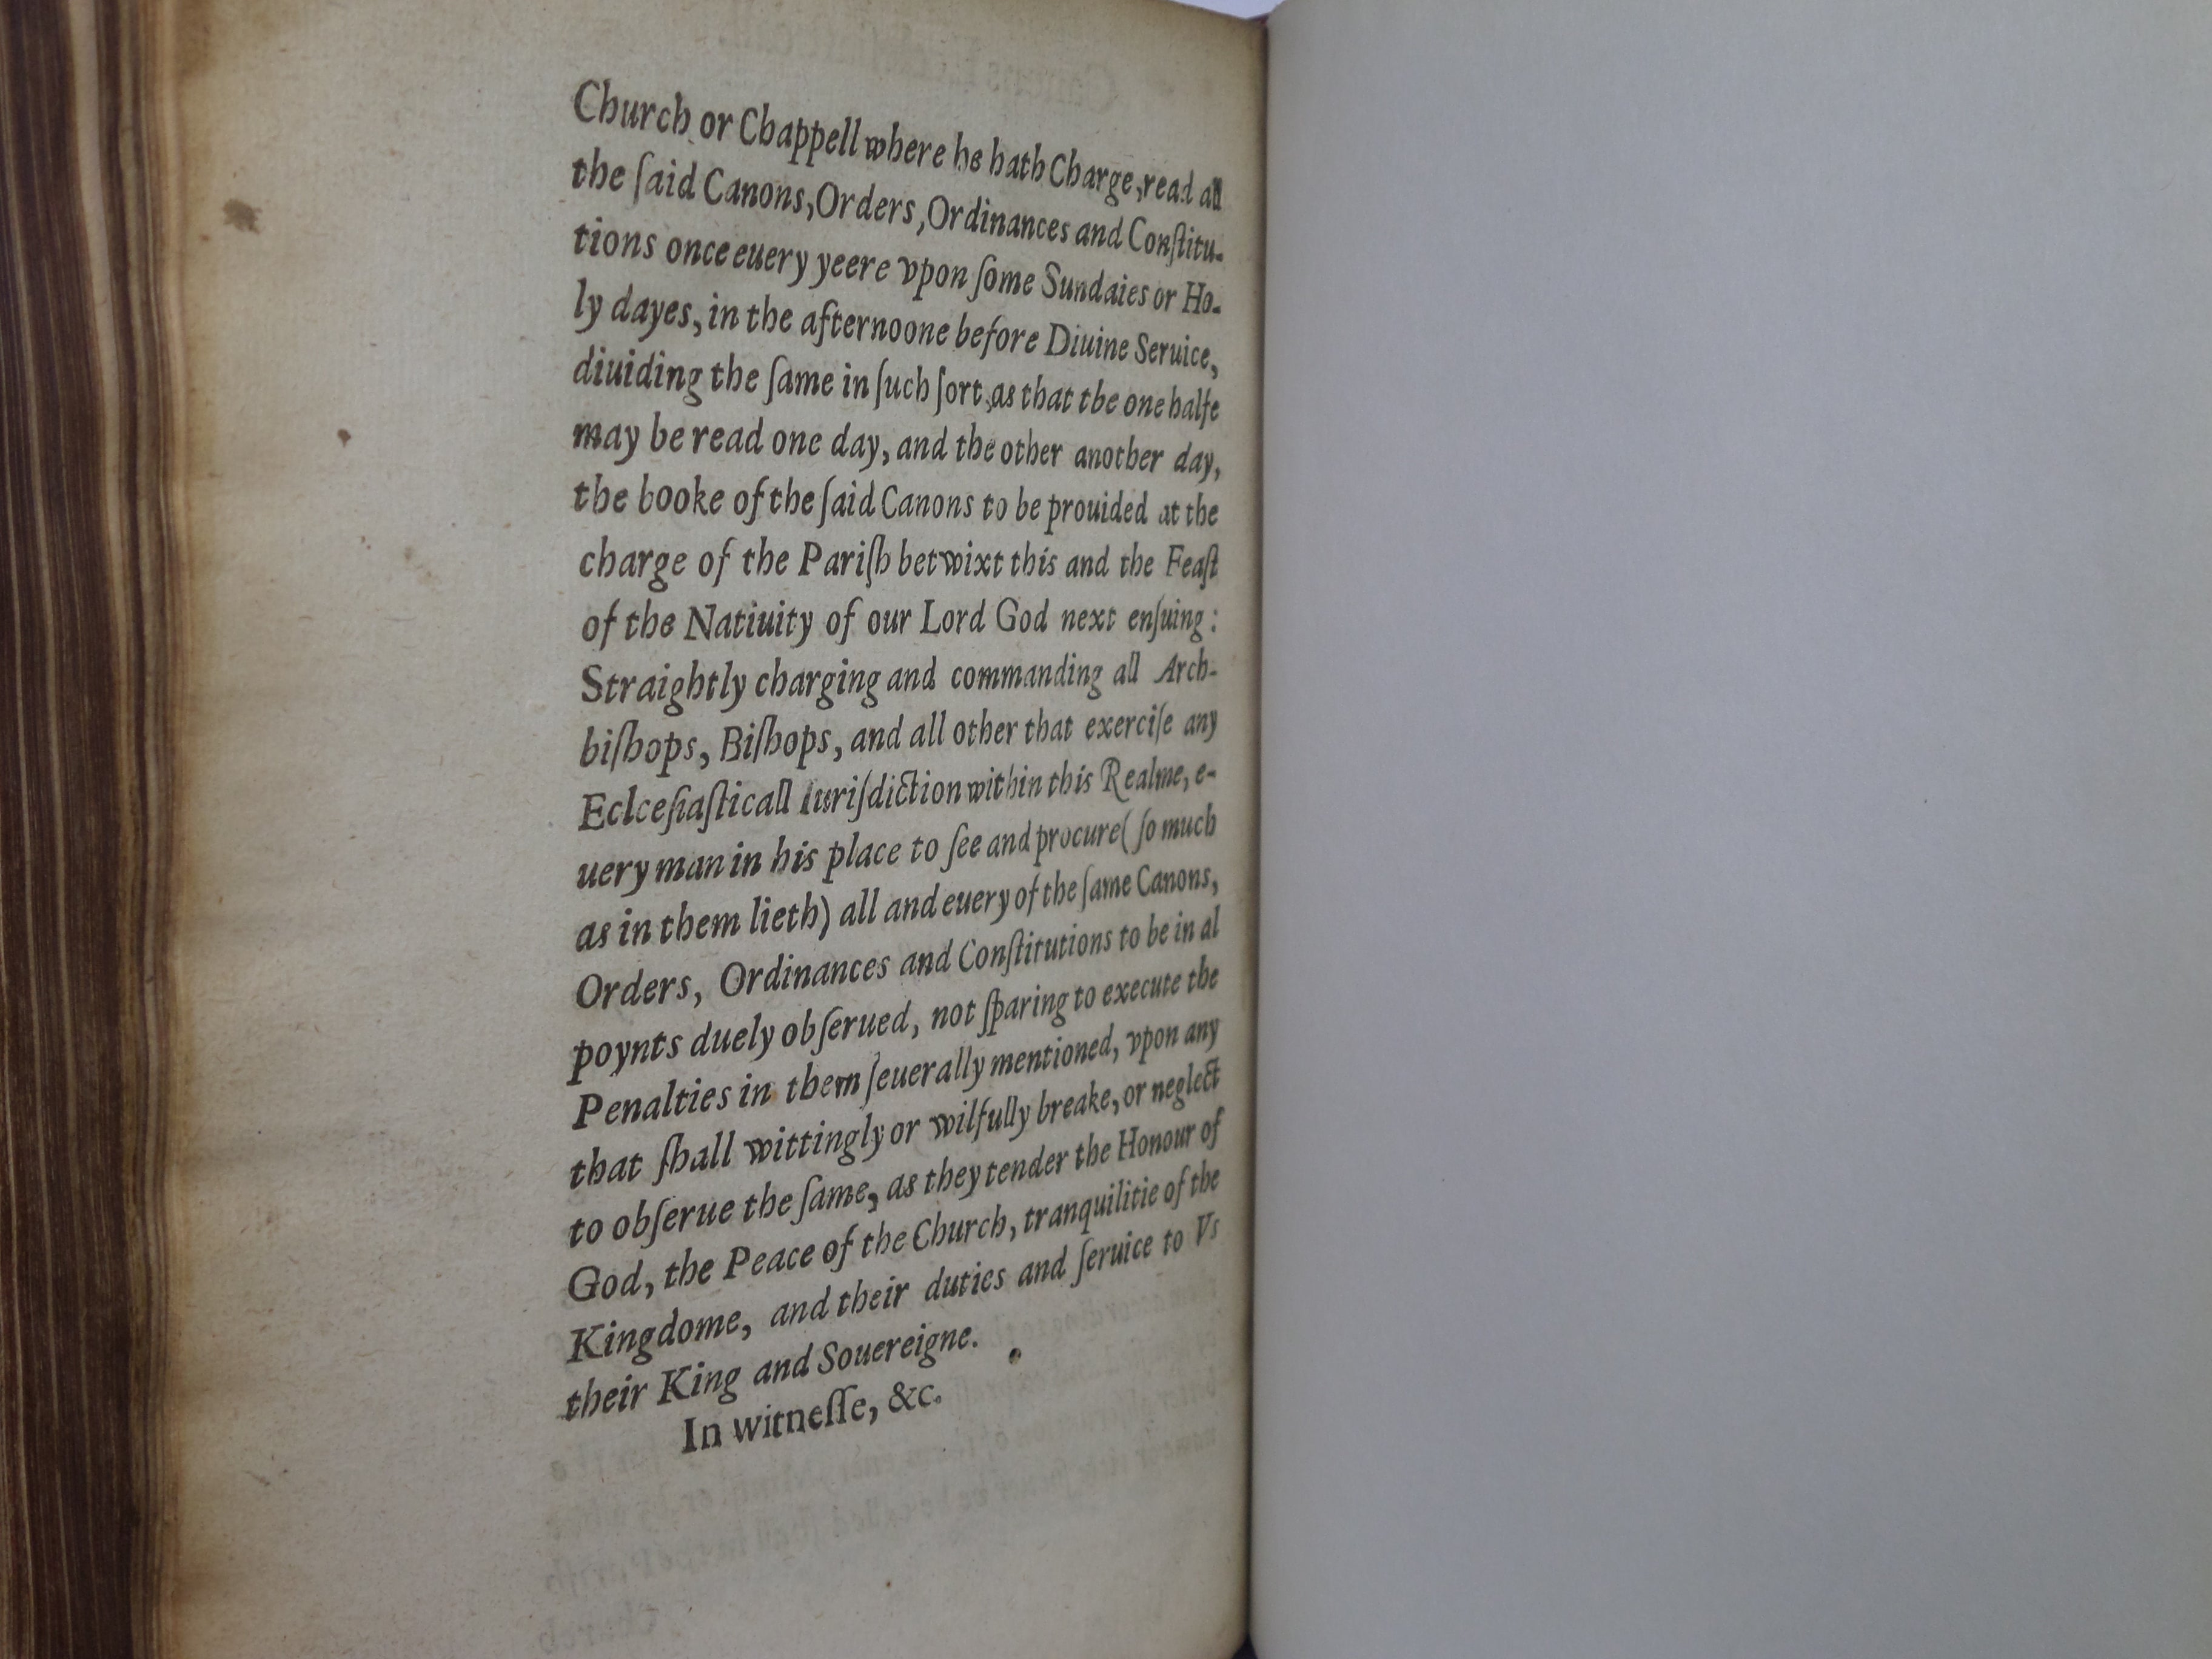 Church or Chappell where he hath Charge, read all
the ſaid Canons, Orders, Ordinances and Conſtitu-
tions once euery yeere vpon ſome Sundaies or Ho-
ly dayes, in the afternoone before Diuine Seruice,
diuiding the ſame in ſuch ſort, as that the one halfe
may be read one day, and the other another day,
the booke of the ſaid Canons to be prouided at the
charge of the Pariſh betwixt this and the Feaſt
of the Natiuity of our Lord God next enſuing:
Straightly charging and commanding all Arch-
biſhops, Biſhops, and all other that exerciſe any
Eclceſiaſticall Iuriſdiction within this Realme, e-
uery man in his place to ſee and procure (ſo much
as in them lieth) all and euery of the ſame Canons,
Orders, Ordinances and Conſtitutions to be in al
poynts duely obſerued, not ſparing to execute the
Penalties in them ſeuerally mentioned, vpon any
that ſhall wittingly or wilfully breake, or neglect
to obſerue the ſame, as they tender the Honour of
God, the Peace of the Church, tranquilitie of the
Kingdome, and their duties and ſeruice to Vs
their King and Souereigne.
In witneſſe, &c.